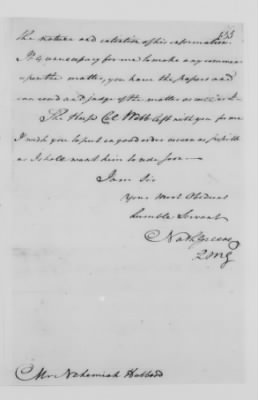 the nature and extention of his information.
It is unnecessary for me to make any comments
upon the matter, you have the papers and
can read and judge of the matter as well as I.—
The Horse Col Webb left with you for me
I wish you to put in good order as soon as possible
as I shall want him to ride soon—
I am Sir
Your most Obedient
humble Servant
Nath Greene
QMG
Mr Nehemiah Hubbard